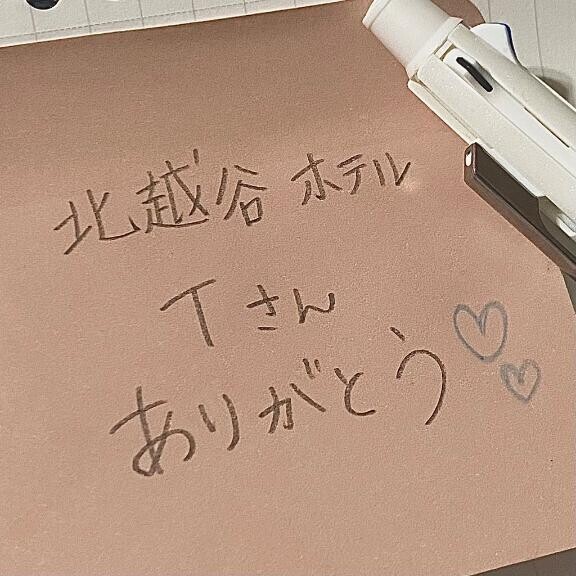 北越谷 ホテル
Tさん
ありがとう♡♡